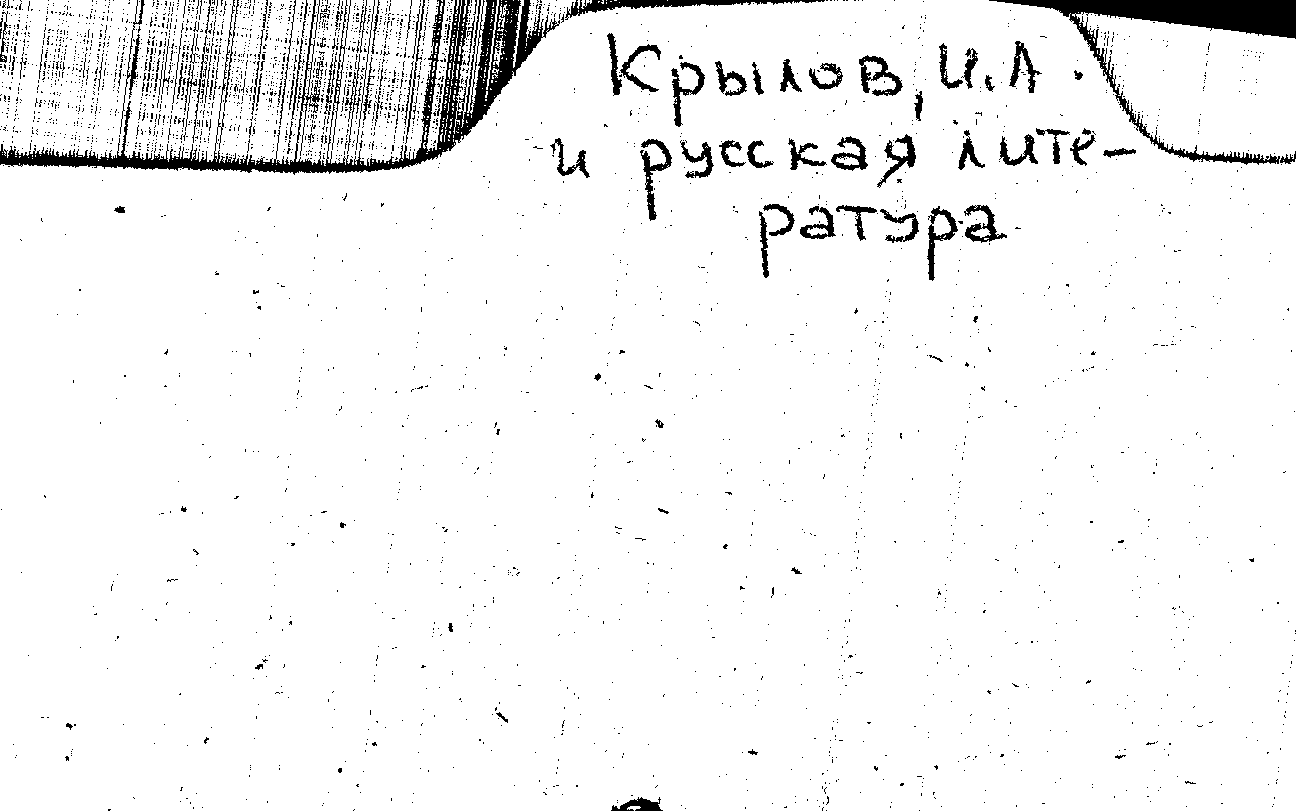 Крылов, И.А.
и русская лите-
ратура